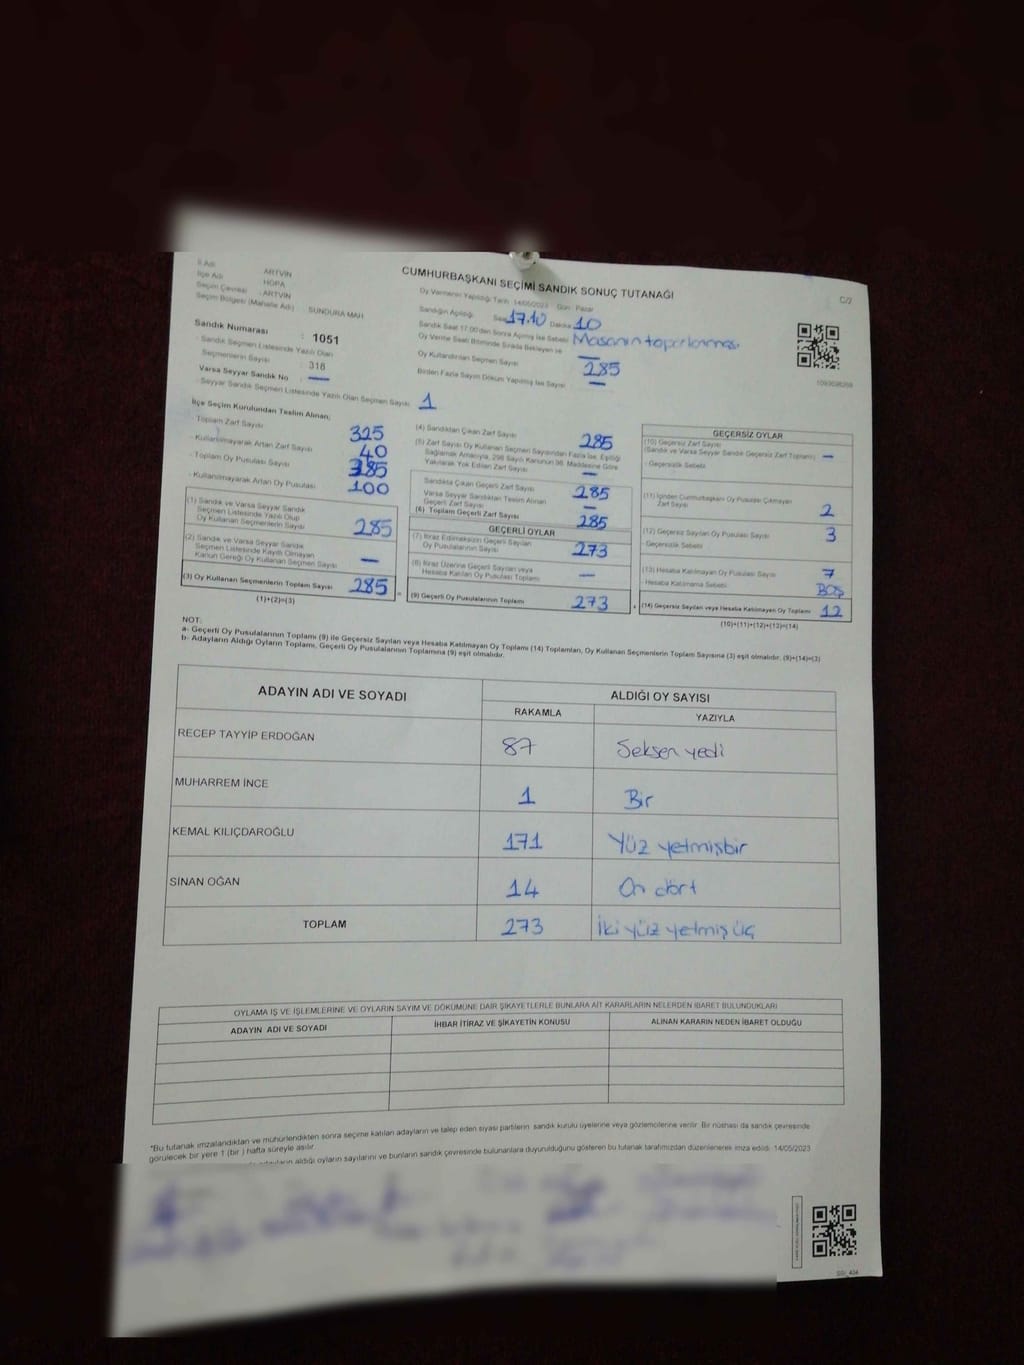 İl Adı ARTVİN
İlçe Adı HOPA
Seçim Çevresi : ARTVİN
Seçim Bölgesi (Mahalle Adı) SUNDURA MAH
CUMHURBAŞKANI SEÇİMİ SANDIK SONUÇ TUTANAĞI
C/2
Oy Vermenin Yapıldığı Tarih 14/05/2023 Gün Pazar
Sandığın Açıldığı Saat 17.10 Dakika 10
Sandık Saat 17:00'den Sonra Açılmış İse Sebebi Masanın toparlanması
Oy Verme Saati Bitiminde Sırada Bekleyen ve —
Oy Kullandırılan Seçmen Sayısı 285
Birden Fazla Sayım Döküm Yapılmış İse Sayısı —
Sandık Numarası : 1051
Sandık Seçmen Listesinde Yazılı Olan
Seçmenlerin Sayısı : 318
Varsa Seyyar Sandık No : —
Seyyar Sandık Seçmen Listesinde Yazılı Olan Seçmen Sayısı 1
İlçe Seçim Kurulundan Teslim Alınan;
Toplam Zarf Sayısı 325
Kullanılmayarak Artan Zarf Sayısı 40
Toplam Oy Pusulası Sayısı 385
Kullanılmayarak Artan Oy Pusulası 100
(1) Sandık ve Varsa Seyyar Sandık
Seçmen Listesinde Yazılı Olup
Oy Kullanan Seçmenlerin Sayısı 285
(2) Sandık ve Varsa Seyyar Sandık
Seçmen Listesinde Kayıtlı Olmayan
Kanun Gereği Oy Kullanan Seçmen Sayısı —
(3) Oy Kullanan Seçmenlerin Toplam Sayısı 285
(1)+(2)=(3)
(4) Sandıktan Çıkan Zarf Sayısı 285
(5) Zarf Sayısı Oy Kullanan Seçmen Sayısından Fazla İse, Eşitliği
Sağlamak Amacıyla, 298 Sayılı Kanunun 98. Maddesine Göre
Yakılarak Yok Edilen Zarf Sayısı —
Sandıkta Çıkan Geçerli Zarf Sayısı 285
Varsa Seyyar Sandıktan Teslim Alınan
Geçerli Zarf Sayısı —
(6) Toplam Geçerli Zarf Sayısı 285
GEÇERLİ OYLAR
(7) İtiraz Edilmeksizin Geçerli Sayılan
Oy Pusulalarının Sayısı 273
(8) İtiraz Üzerine Geçerli Sayılan veya
Hesaba Katılan Oy Pusulası Toplamı —
= (9) Geçerli Oy Pusulalarının Toplamı 273
GEÇERSİZ OYLAR
(10) Geçersiz Zarf Sayısı
(Sandık ve Varsa Seyyar Sandık Geçersiz Zarf Toplamı) —
- Geçersizlik Sebebi
(11) İçinden Cumhurbaşkanı Oy Pusulası Çıkmayan
Zarf Sayısı 2
(12) Geçersiz Sayılan Oy Pusulası Sayısı 3
- Geçersizlik Sebebi
(13) Hesaba Katılmayan Oy Pusulası Sayısı 7
- Hesaba Katılmama Sebebi BOŞ
+ (14) Geçersiz Sayılan veya Hesaba Katılmayan Oy Toplamı 12
(10)+(11)+(12)+(13)=(14)
NOT:
a- Geçerli Oy Pusulalarının Toplamı (9) ile Geçersiz Sayılan veya Hesaba Katılmayan Oy Toplamı (14) Toplamları, Oy Kullanan Seçmenlerin Toplam Sayısına (3) eşit olmalıdır. (9)+(14)=(3)
b- Adayların Aldığı Oyların Toplamı, Geçerli Oy Pusulalarının Toplamına (9) eşit olmalıdır.
ADAYIN ADI VE SOYADI
ALDIĞI OY SAYISI
RAKAMLA YAZIYLA
RECEP TAYYİP ERDOĞAN 87 Seksen yedi
MUHARREM İNCE 1 Bir
KEMAL KILIÇDAROĞLU 171 Yüz yetmişbir
SİNAN OĞAN 14 On dört
TOPLAM 273 İki yüz yetmiş üç
OYLAMA İŞ VE İŞLEMLERİNE VE OYLARIN SAYIM VE DÖKÜMÜNE DAİR ŞİKAYETLERLE BUNLARA AİT KARARLARIN NELERDEN İBARET BULUNDUKLARI
ADAYIN ADI VE SOYADI İHBAR İTİRAZ VE ŞİKAYETİN KONUSU ALINAN KARARIN NEDEN İBARET OLDUĞU
*Bu tutanak imzalandıktan ve mühürlendikten sonra seçime katılan adayların ve talep eden siyasi partilerin sandık kurulu üyelerine veya gözlemcilerine verilir. Bir nüshası da sandık çevresinde
görülecek bir yere 1 (bir ) hafta süreyle asılır.
adayların aldığı oyların sayılarını ve bunların sandık çevresinde bulunanlara duyurulduğunu gösteren bu tutanak tarafımızdan düzenlenerek imza edildi. 14/05/2023